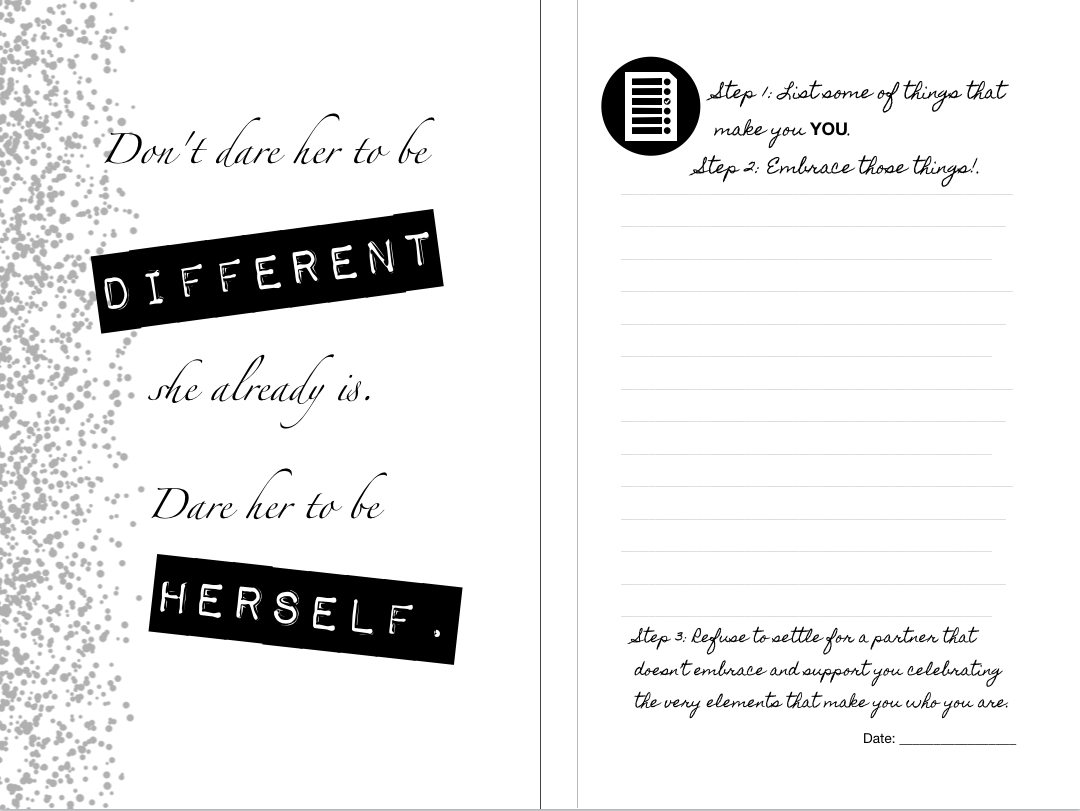 Don't dare her to be
DIFFERENT
she already is.
Dare her to be
HERSELF.
Step 1: List some of things that
make you YOU.
Step 2: Embrace those things!.
Step 3: Refuse to settle for a partner that
doesn't embrace and support you celebrating
the very elements that make you who you are.
Date: _________________